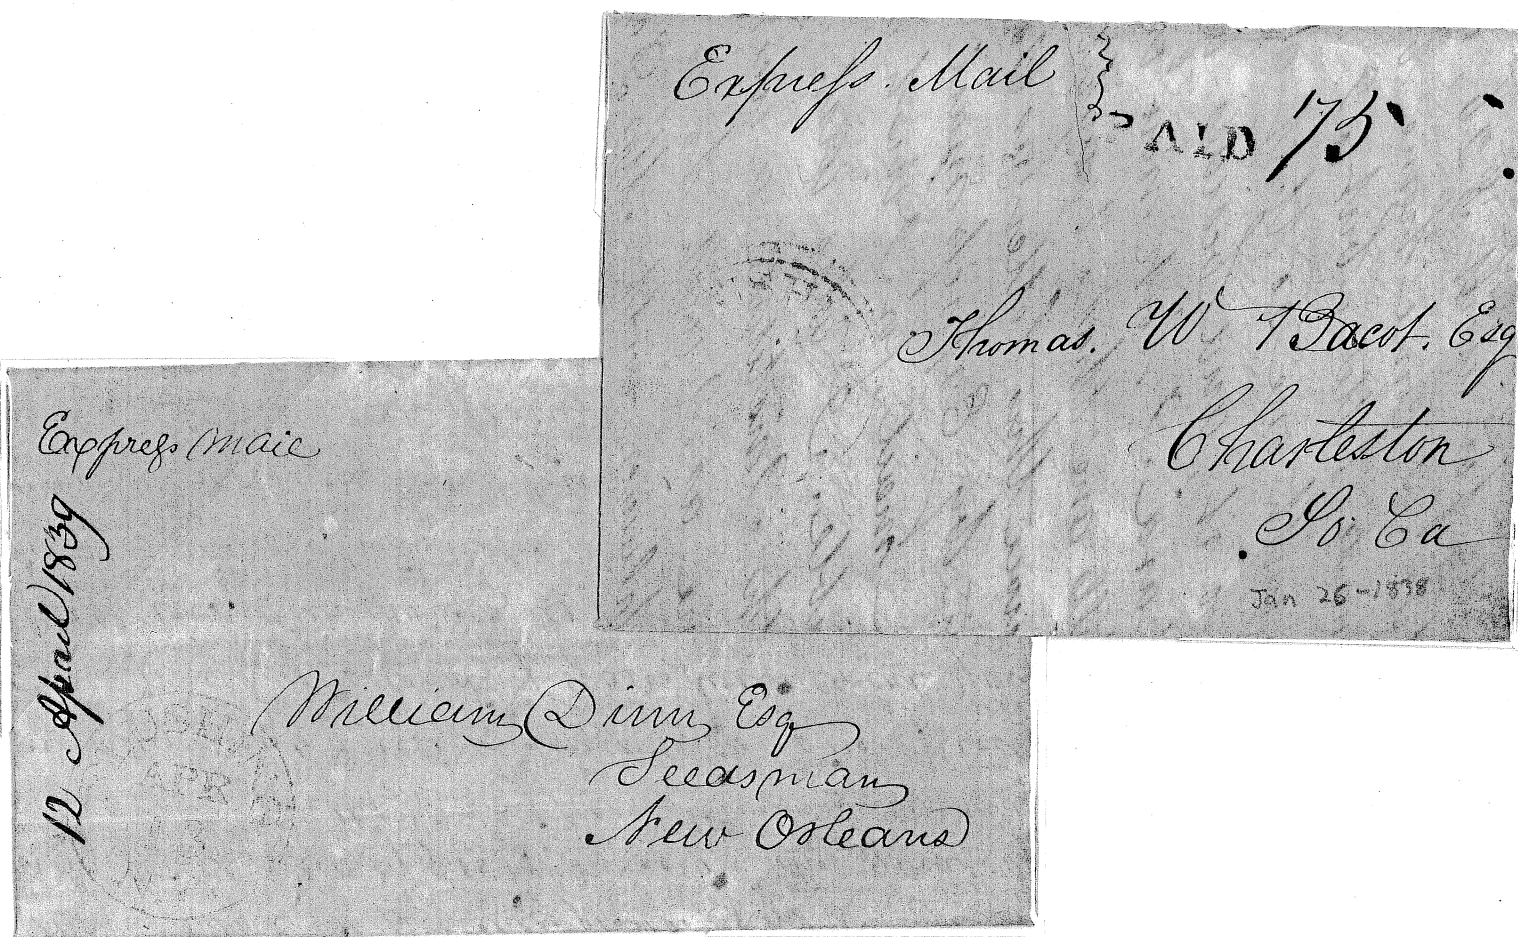 Express. Mail
AID 75
Thomas. W Bacot. Esq
Charleston
So. Ca
Jan 26-1838
Express Mail
12 April 1839
APR
William Dinn Esq
Seedsman
New Orleans